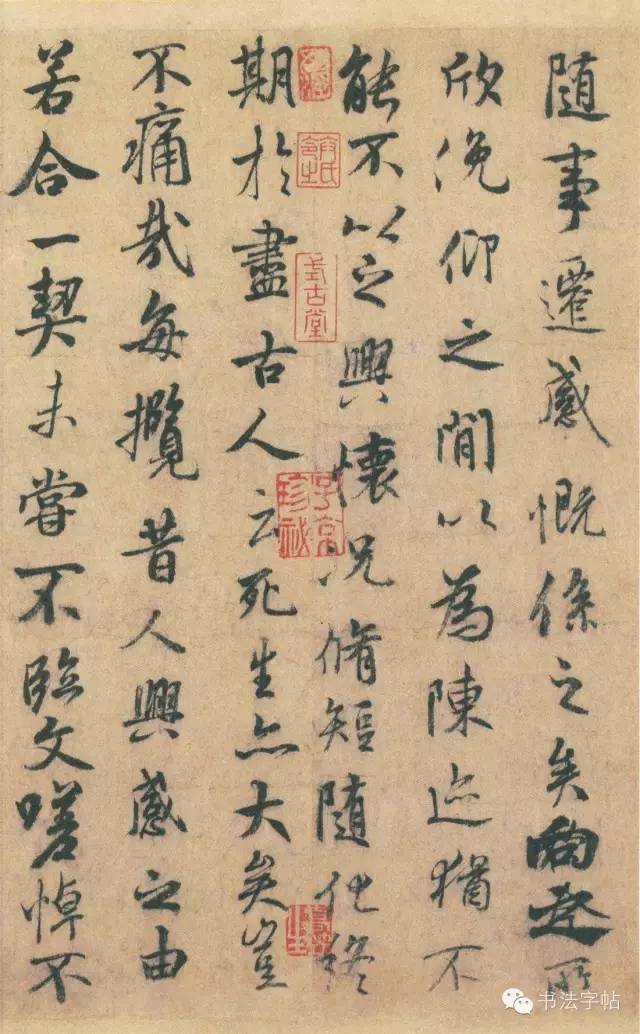 随事遷感慨係之矣向之所
欣俛仰之閒以為陳迹猶不
能不以之興懷況脩短随化終
期於盡古人云死生亦大矣豈
不痛哉每攬昔人興感之由
若合一契未嘗不臨文嗟悼不
式古堂
子京珍祕
书法字帖